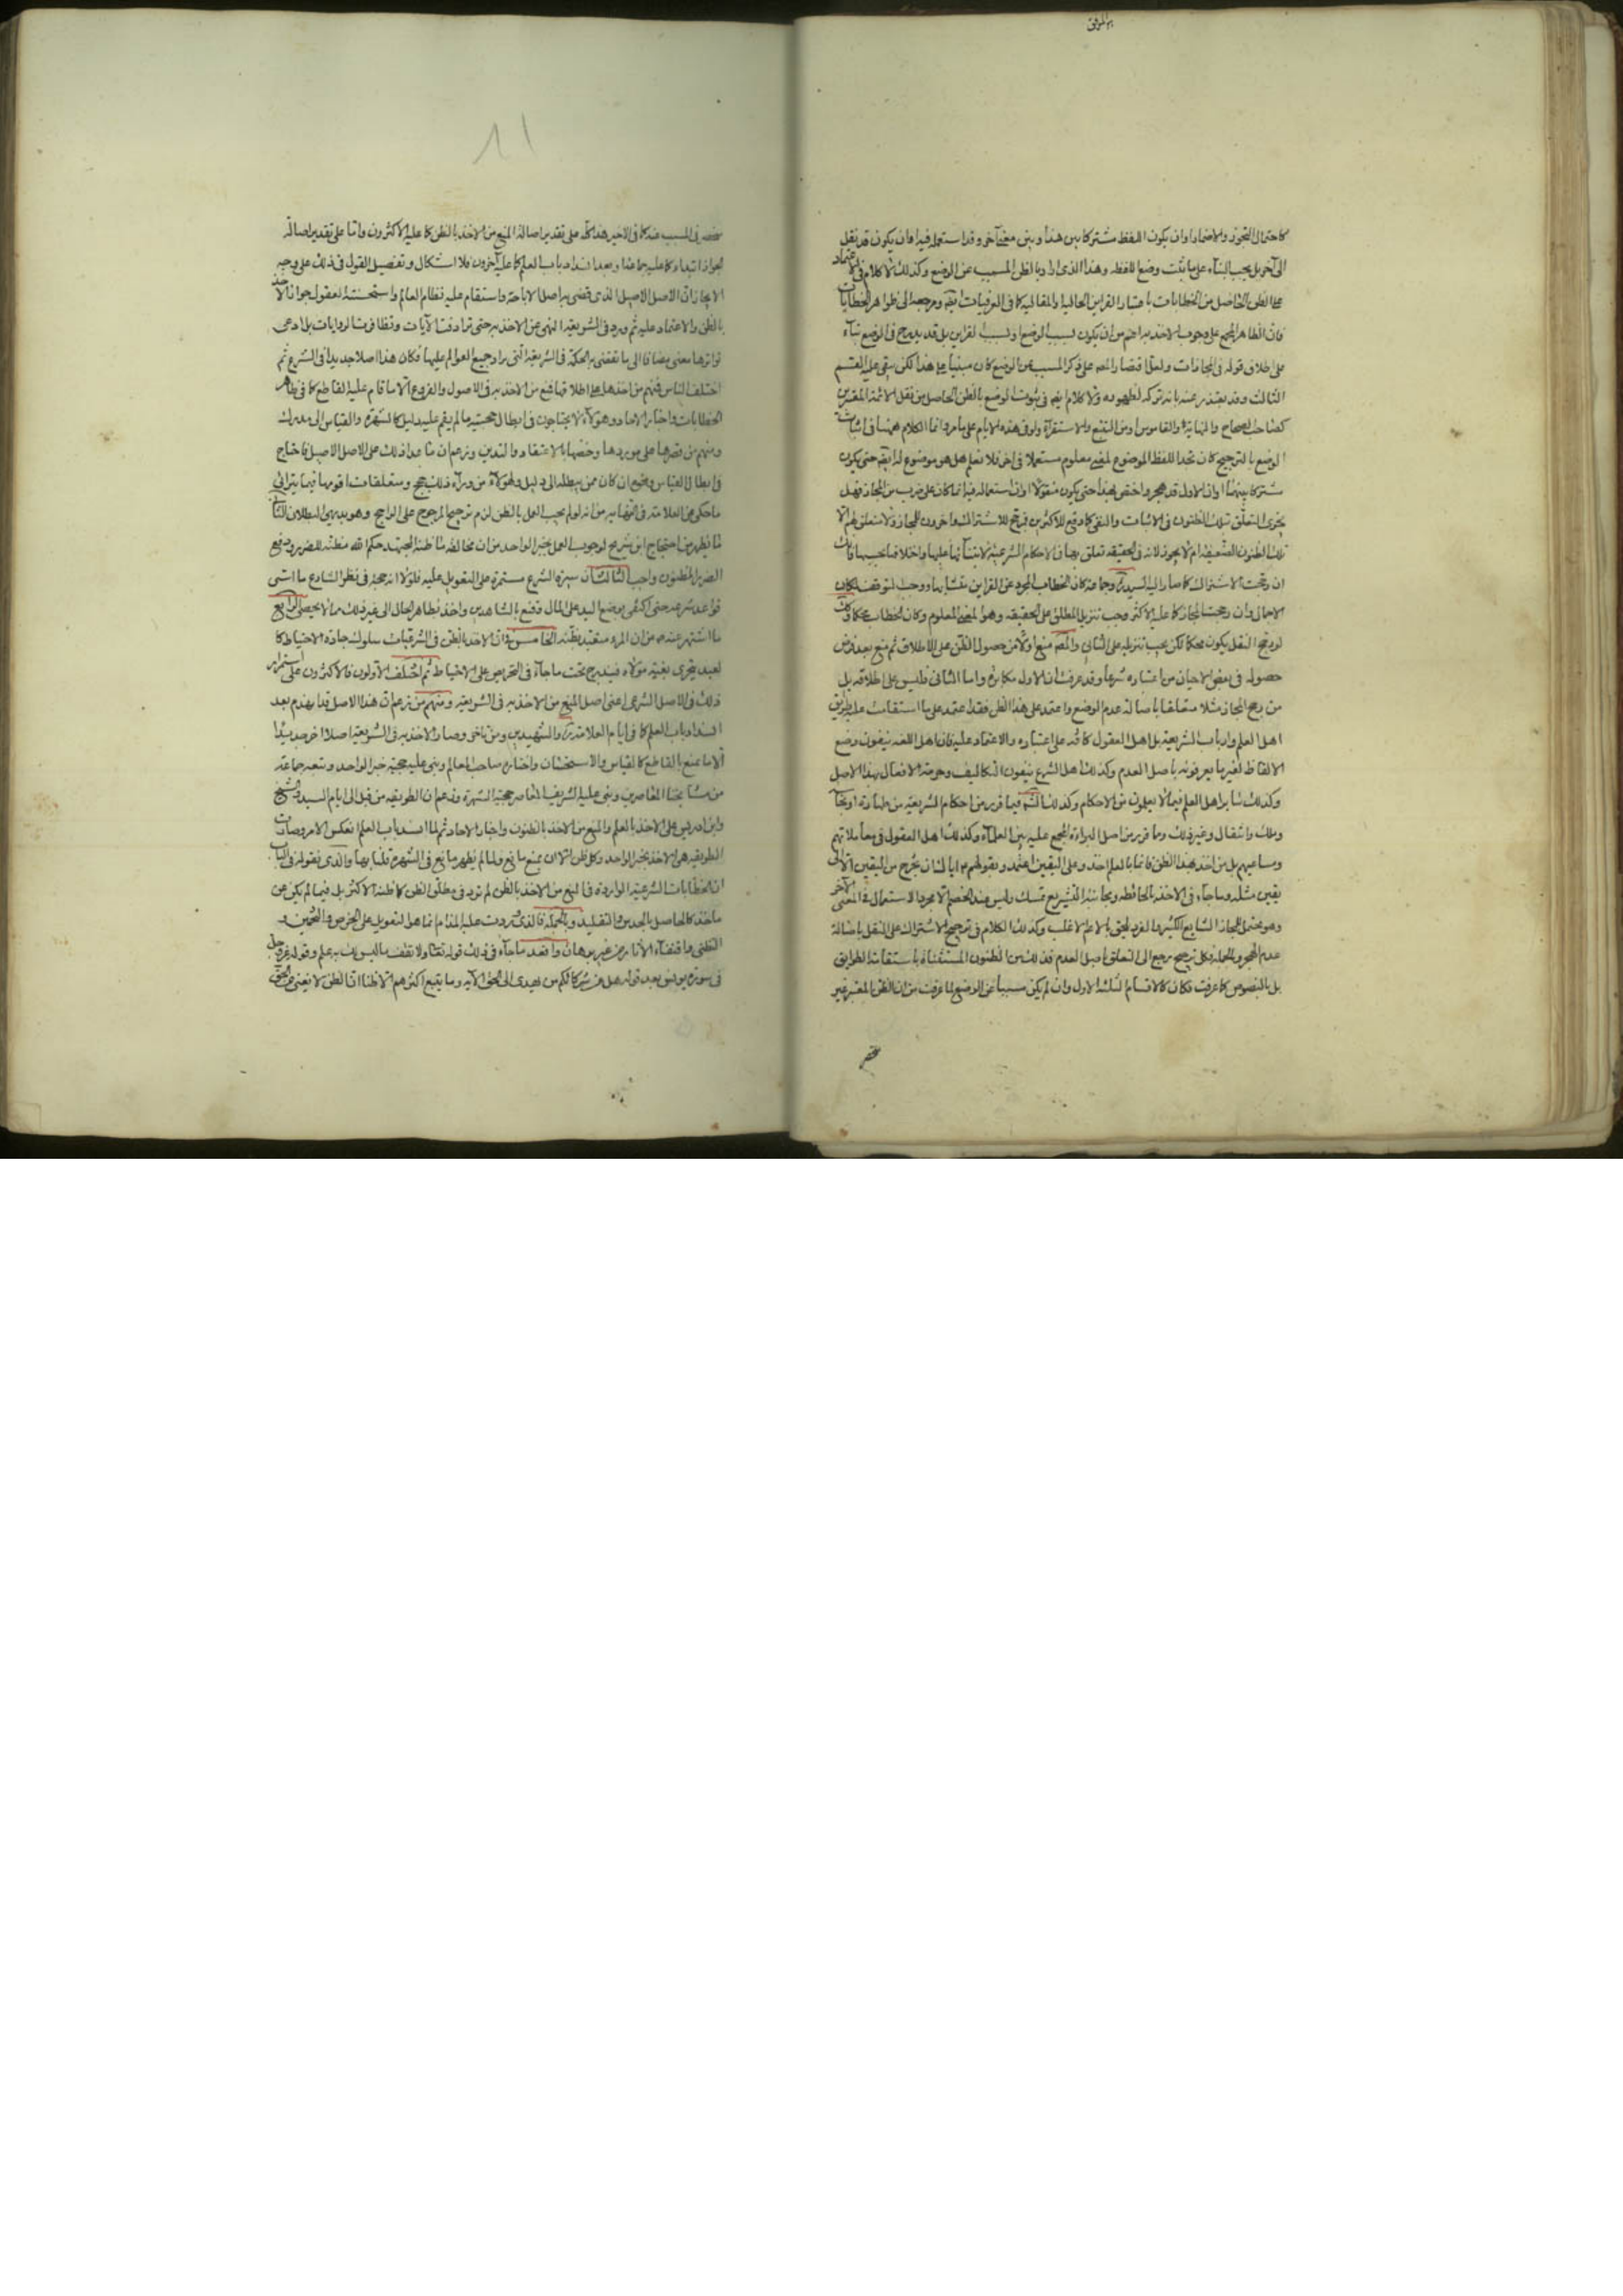 كاحتمال التجوز والاضمار او ان يكون اللفظ مشتركا بين هذا وبين معنى آخر وقد استعمله فيه او ان يكون قد نقل
الى آخر بل يجب البناء على ما يثبت وضع اللفظ وهذا الذى اراد بالظن المسبب عن الوضع وكذلك لا كلام فى الاعتماد
على الظن الحاصل من الخطابات باعتبار القراين الحالية والمقالية كما فى العرفيات ومرجعه الى ظواهر الخطابات
فان الظاهر المجمع على وجوب الاخذ به اعم من ان يكون لسبب الوضع او لسبب القراين بل قد يندرج فى الوضع بناء
على اطلاق قوله فى المجازات ولعل اقتصار المص على ذكر المسبب عن الوضع كان مبنيا على هذا لكن يبقى عليه القسم
الثالث وقد يعتذر عنه بانه تركه لظهوره ولا كلام فى ثبوت الوضع بالظن الحاصل من نقل الائمة المعتبرين
كصاحب الصحاح والنهاية والقاموس او من التتبع والاستقراء ولو فى هذه الايام على ما مر وانما الكلام ههنا فى اثبات
الوضع بالترجيح كان نجد اللفظ الموضوع لمعنى معلوم مستعملا فى آخر فلا نعلم هل هو موضوع له حتى يكون
مشتركا بينهما او ان الاول قد هجر واختص بهذا حتى يكون منقولا او ان استعماله فيه انما كان على ضرب من المجاز فهل
يجزى التعلق بتلك الظنون فى الاثبات والنفى كما وقع للاكثرين فرجح للاشتراك وآخرون للمجاز
تلك الظنون الضعيفة ام لا يجوز لانه فى الحقيقة تعلق بها فى الاحكام الشرعية لابتنائها عليها واختلافها بحسبها فانك
ان رجحت الاشتراك كما صار اليه السيد وجماعة كان الخطاب المجرد عن القراين متشابها ووجب التوقف لمكان
الاجمال وان رجحت المجاز كما عليه الاكثر وجب تنزيل المطلق على الحقيقة وهو المعنى المعلوم وكان الخطاب محكما وكذا
لو رجح النقل يكون محكما لكن يجب تنزيله على الثانى والمص منع اولا من حصول الظن على الاطلاق ثم منع بعد فرض
حصوله فى بعض الاحيان من اعتباره شرعا وقد عرفت ان الاول مكابرة واما الثانى فليس على اطلاقه بل
من رجح المجاز مثلا متعلقا باصالة عدم الوضع واعتمد على هذا الظن فقد اعتمد على ما استقامت عليه طرايق
اهل العلم وارباب الشريعة بل اهل العقول كافة على اعتباره والاعتماد عليه فان اهل اللغة ينفون وضع
الالفاظ لغير ما يعرفونه باصل العدم وكذلك اهل الشرع ينفون التكاليف وحرمة الافعال بهذا الاصل
وكذلك ساير اهل العلم فيما لا يعلمون من الاحكام وكذلك فيما قرره من احكام الشريعة من طهارة او نجاسة
وملك وانتقال وغير ذلك وما قرره من اصل البراءة المجمع عليه بين العلماء وكذلك اهل العقول فى معاملاتهم
ومساعيهم بل من اخذ بهذا الظن فانما بالعلم اخذ وعلى اليقين اعتمد وبقولهم ايا لك ان تخرج من اليقين الا الى
يقين مثله وما جاء فى الاخذ بالحائطة ومجانبة التشريع تمسك وليس عند الخصم الا مجرد الاستعمال فى المعنى الآخر
وهو محتمل للمجاز الشايع الكثير والفرد يلحق بالاعم الاغلب وكذلك الكلام فى ترجيح الاشتراك على النقل باصالة
عدم الهجر وبالجملة فكل ترجيح يرجع الى التعلق باصل العدم فذلك من الظنون المستثناة باستقامة الطرايق
بل بالنصوص كما عرفت فكان كالاقسام الثلثة الاول وان لم يكن مسببا عن الوضع لما عرفت من ان الظن المعتبر غير
منحصر فى المسبب عنه كما فى الاخير هذا كله على تقدير اصالة المنع من الاخذ بالظن كما عليه الاكثرون واما على تقدير اصالة
الجواز ابتداء كما عليه جماعة او بعد انسداد باب العلم كما عليه آخرون فلا اشكال وتفصيل القول فى ذلك على وجه
الايجاز ان الاصل الاصيل الذى قضى به اصل الاباحة واستقام عليه نظام العالم واستحسنته العقول جواز الاخذ
بالظن والاعتماد عليه ثم ورد فى الشريعة النهى عن الاخذ به حتى ترادفت الآيات وتظافرت الروايات بل ادعى
تواترها معنى مضافا الى ما تقتضيه الحكمة فى الشريعة التى يراد جميع العوالم عليها فكان هذا اصلا جديدا فى الشرع ثم
اختلف الناس فمنهم من اخذها على اطلاقها فمنع من الاخذ به فى الاصول والفروع الا ما قام عليه القاطع كما فى ظاهر
الخطابات واخبار الآحاد وهؤلاء لا يحتاجون فى ابطال حجية ما لم يقم عليه دليل كالشهرة والقياس الى مدرك
ومنهم من قصرها على موردها وخصها بالاعتقاد والتدين وزعم ان ما عدا ذلك على الاصل الاصيل فاحتاج
فى ابطال القياس ان كان ممن يبطله الى دليل ولهؤلاء من وراء ذلك حجج ومتعلقات اقومها فيما يترائى
ما حكى عن العلامة فى النهاية من انه لو لم يجب العمل بالظن لزم ترجيح المرجوح على الراجح وهو بديهى البطلان الثانى
ما يظهر من احتجاج ابن شريح لوجوب العمل بخبر الواحد من ان مخالفة ما ظنه المجتهد حكم الله مظنة للضرر ودفع
الضرر المظنون واجب الثالث ان سيرة الشرع مستمرة على التعويل عليه فلولا انه حجة فى نظر الشارع ما ابتنى
قواعد شرعه حتى اكتفى بوضع اليد على المال وقنع بالشاهدين واخذ بظاهر الحال الى غير ذلك مما لا يحصى الرابع
ما اشتهر عنه من ان المرء متعبد بظنه الخامس ان الاخذ بالظن فى الشرعيات سلوك جادة الاحتياط كما
لعبد يتحرى بغية مولاه فيندرج تحت ما جاء فى التحريض على الاحتياط ثم اختلف الاولون فالاكثرون على استمرار
ذلك فى الاصل الشرعى اعنى اصل المنع من الاخذ به فى الشريعة ومنهم من زعم ان هذا الاصل قد انهدم بعد
انسداد باب العلم كما فى ايام العلامة والشهيدين ومن تاخر وصار الاخذ به فى الشريعة اصلا آخر جديدا
الا ما يمنع بالقاطع كالقياس والاستحسان واختاره صاحب المعالم وبنى عليه حجية خبر الواحد وتبعه جماعة
من مشايخنا المعاصرين وبنى عليه الشريف المعاصر حجية الشهرة وزعم ان الطريقة من قبل الى ايام السيد والشيخ
وابن ادريس على الاخذ بالعلم والمنع من الاخذ بالظنون واخبار الآحاد ثم لما انسد باب العلم انعكس الامر وصارت
الطريقة هى الاخذ بخبر الواحد وكل ظن الا ان يمنع مانع ولما لم يظهر مانع فى الشهرة قلنا بها والذى نقوله فى الباب
ان الخطابات الشرعية الواردة فى المنع من الاخذ بالظن لم ترد فى مطلق الظن كما ظنه الاكثر بل فيما لم يكن عن
ماخذ كالحاصل بالحدس والتقليد وبالجملة فالذى وردت عليه المذام انما هو التعويل على الخرص والتخمين و
التظنى واقتفاء الآثار من غير برهان واقعد ما جاء فى ذلك قوله تعالى ولا تقف ما ليس لك به علم وقوله عز وجل
فى سورة يونس بعد قوله هل من شركائكم من يهدى الى الحق الآية وما يتبع اكثرهم الا ظنا ان الظن لا يغنى من الحق